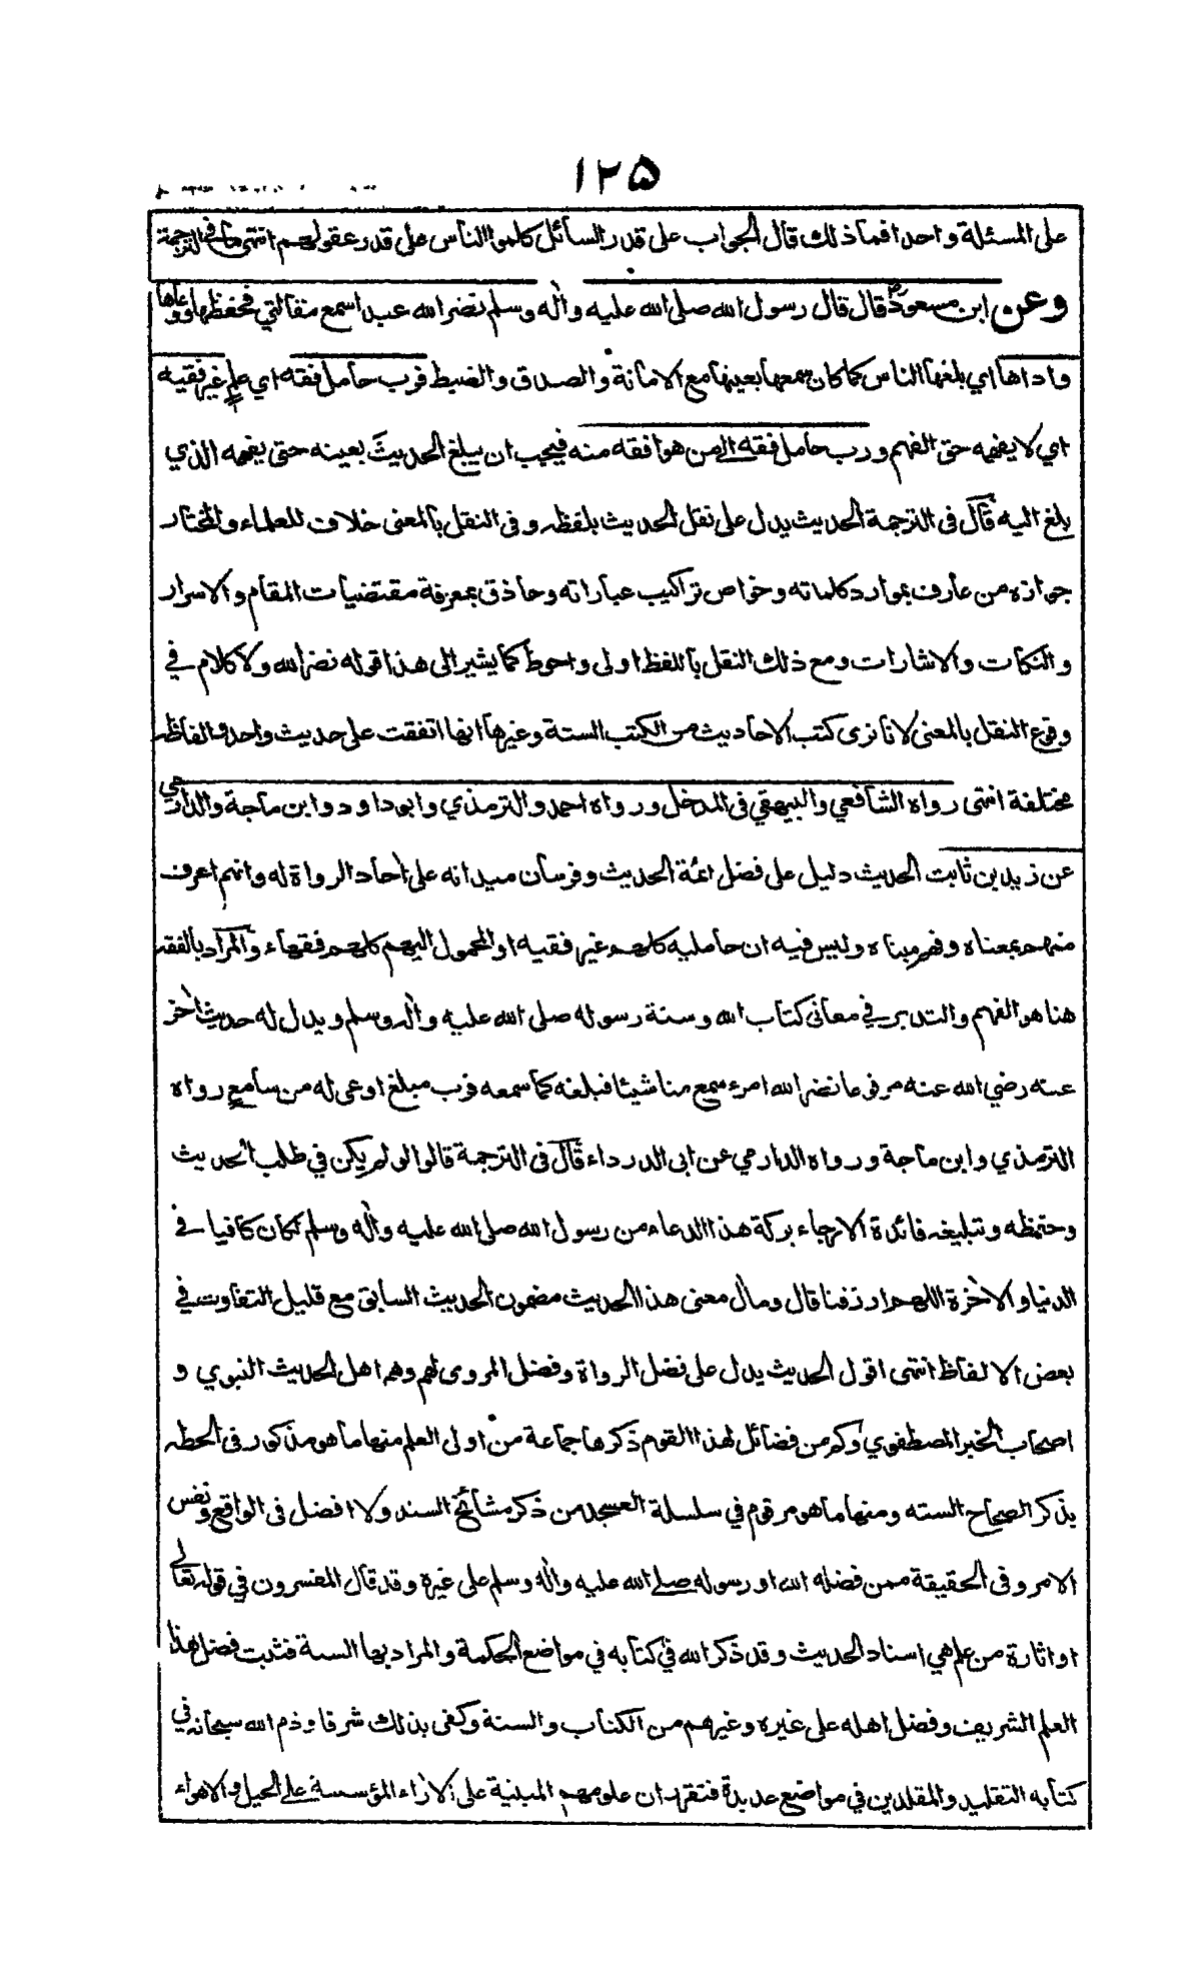 ١٢٥
على المسئلة واحدا فماذلك قال الجواب على قدر السائل كلموا الناس على قدر عقولهم انتهى ما في الترجمة
وعن ابن مسعود رض قال قال رسول الله صلى الله عليه وآله وسلم نضر الله عبدا سمع مقالتي فحفظها ووعاها
واداها اي بلغها الناس كما كان سمعها بعينها مع الامانة والصدق والضبط فرب حامل فقه اي علمٍ غير فقيه
اي لا يفهمه حق الفهم ورب حامل فقه الى من هو افقه منه فيجب ان يبلغ الحديثَ بعينه حتى يفهمه الذي
بلغ اليه قال فى الترجمة الحديث يدل على نقل الحديث بلفظه وفى النقل بالمعنى خلاف للعلماء والمختار
جوازه من عارف بموارد كلماته وخواص تراكيب عباراته وحاذق بمعرفة مقتضيات المقام والاسرار
والنكات والاشارات ومع ذلك النقل باللفظ اولى واحوط كما يشير الى هذا قوله نضر الله ولا كلام في
وقوع النقل بالمعنى لانا نرى كتب الاحاديث من الكتب الستة وغيرها انها اتفقت على حديث واحد والفاظه
مختلفة انتهى رواه الشافعي والبيهقي فى المدخل ورواه احمد والترمذي وابوداود وابن ماجة والدارمي
عن زيد بن ثابت الحديث دليل على فضل ائمة الحديث وفرسان ميدانه على آحاد الرواة له وانهم اعرف
منهم بمعناه وفهم مبناه وليس فيه ان حامليه كلهم غير فقيه او المحمول اليهم كلهم فقهاء والمراد بالفقه
هنا هو الفهم والتدبر في معانى كتاب الله وسنة رسوله صلى الله عليه وآله وسلم ويدل له حديث آخر
عنه رضي الله عنه مرفوعا نضر الله امرء سمع منا شيئا فبلغه كما سمعه فرب مبلغ اوعى له من سامعٍ رواه
الترمذي وابن ماجة ورواه الدارمي عن ابى الدرداء قال فى الترجمة قالوا لو لم يكن في طلب الحديث
وحفظه وتبليغه فائدة الا رجاء بركة هذا الدعاء من رسول الله صلى الله عليه وآله وسلم لكان كافيا في
الدنيا والآخرة اللهم ارزقنا قال ومآل معنى هذا الحديث مضمون الحديث السابق مع قليل التفاوت في
بعض الالفاظ انتهى اقول الحديث يدل على فضل الرواة وفضل المروى لهم وهم اهل الحديث النبوي و
اصحاب الخبر المصطفوي وكم من فضائل لهذا القوم ذكرها جماعة من اولى العلم منها ما هو مذكور فى الحطه
بذكر الصحاح السته ومنها ما هو مرقوم في سلسلة العسجد من ذكر مشائخ السند ولا افضل فى الواقع ونفس
الامر وفى الحقيقة ممن فضله الله او رسوله صلى الله عليه وآله وسلم على غيره وقد قال المفسرون في قوله تعالى
او اثارة من علم هي اسناد الحديث وقد ذكر الله في كتابه في مواضع الحكمة والمراد بها السنة فثبت فضل هذا
العلم الشريف وفضل اهله على غيره وغيرهم من الكتاب والسنة وكفى بذلك شرفا وذم الله سبحانه في
كتابه التقليد والمقلدين في مواضع عديدة فتقرر ان علومهم المبنية على الآراء المؤسسة على الحيل والاهواء